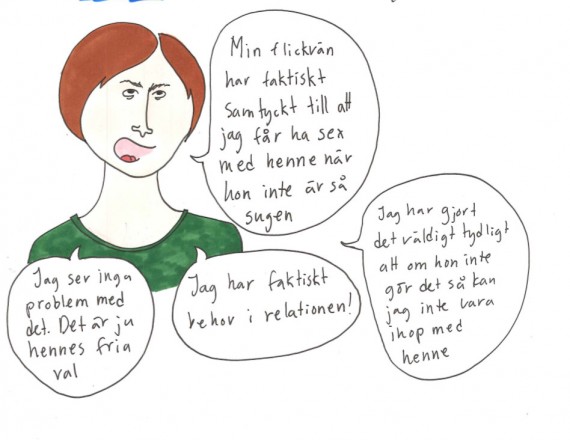 Min flickvän
har faktiskt
samtyckt till att
jag får ha sex
med henne när
hon inte är så
sugen
Jag har gjort
det väldigt tydligt
att om hon inte
gör det så kan
jag inte vara
ihop med
henne
Jag har faktiskt
behov i relationen!
Jag ser inga
problem med
det. Det är ju
hennes fria
val